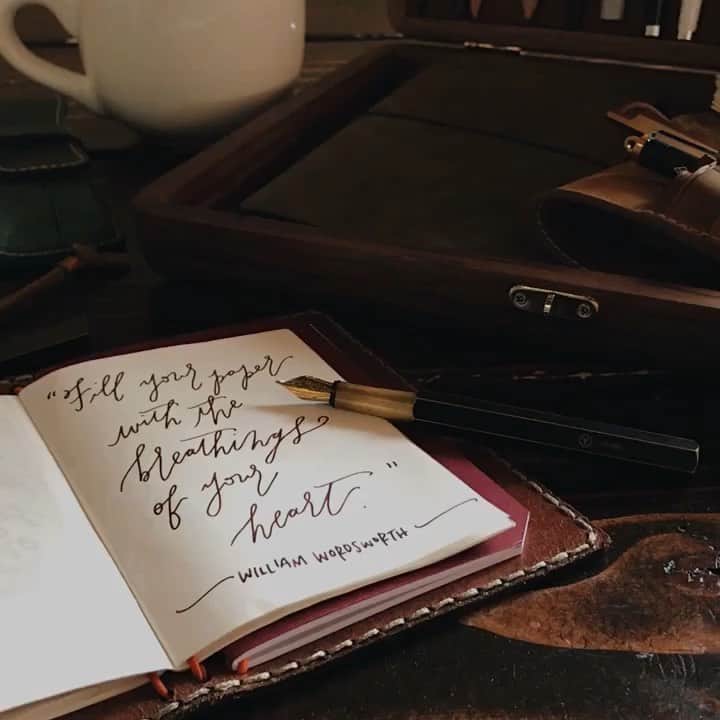 "Fill your paper
with the
breathings
of your
heart."
WILLIAM WORDSWORTH